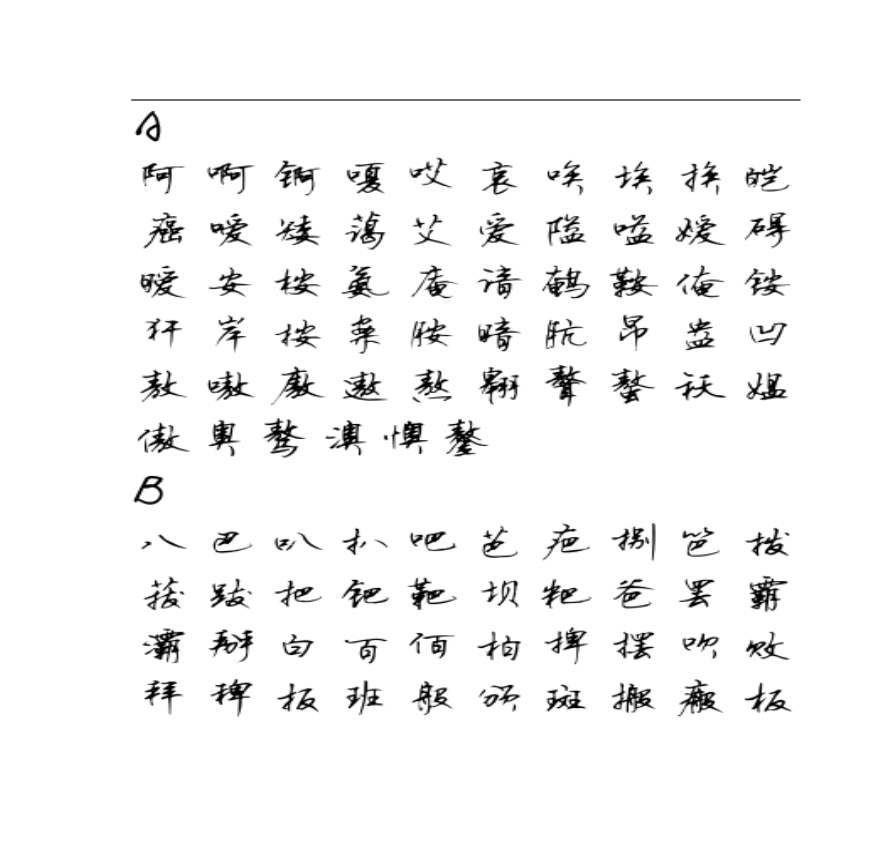 A
阿 啊 锕 嘎 哎 哀 唉 埃 挨 皑
癌 嗳 矮 蔼 艾 爱 隘 嗌 嫒 碍
暧 安 桉 氨 庵 谙 鹌 鞍 俺 铵
犴 岸 按 案 胺 暗 肮 昂 盎 凹
敖 嗷 廒 遨 熬 翱 聱 螯 袄 媪
傲 奥 骜 澳 懊 鏊
B
八 巴 叭 扒 吧 芭 疤 捌 笆 拔
菝 跋 把 钯 靶 坝 耙 爸 罢 霸
灞 掰 白 百 佰 柏 捭 摆 呗 败
拜 稗 扳 班 般 颁 斑 搬 瘢 板